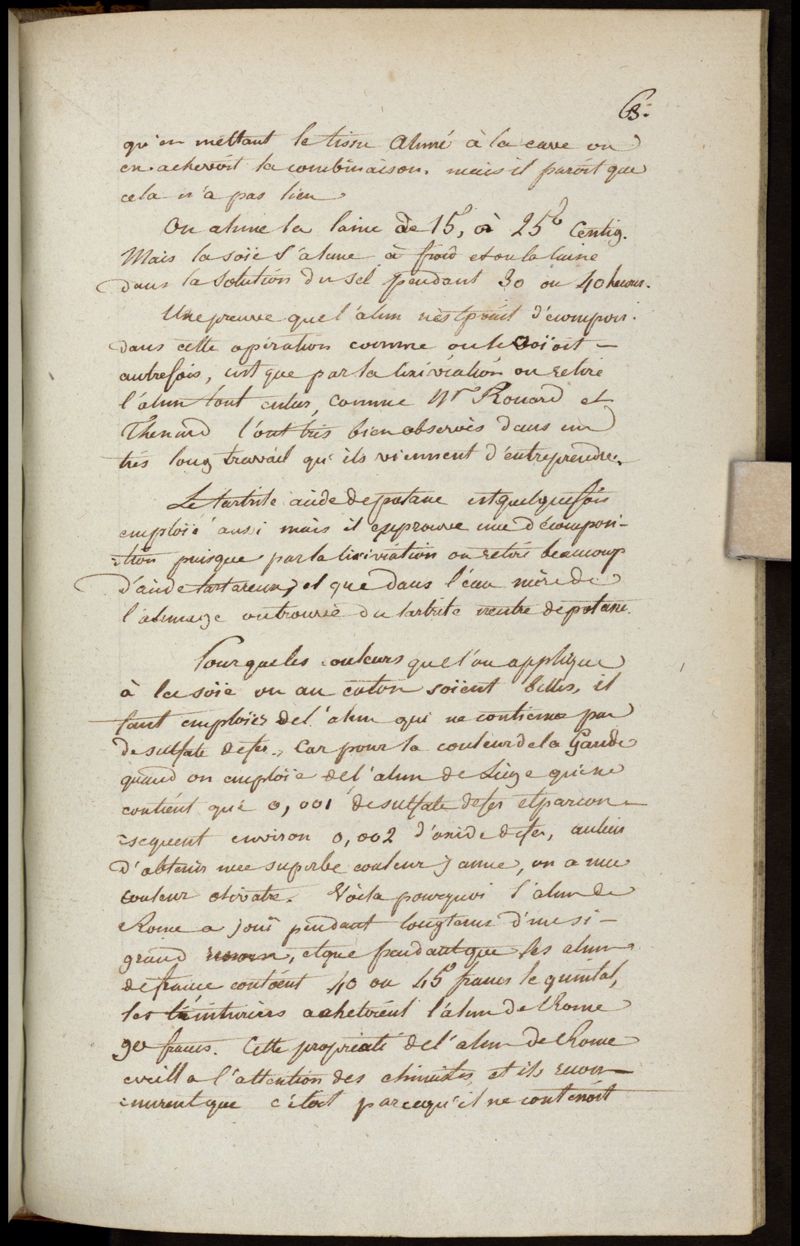 63.
qu'en mettant le tissu aluné à la cave on
en achevoit la combinaison. mais il paroit que
cela n'a pas lieu
On alune la laine de 15°, à 25° Centig.
Mais la soie s'alune à froid et on la laisse
dans la solution du sel pendant 30 ou 40 heures.
Une preuve que l'alun n'est point décompose.
dans cette opération comme on le croioit —
autrefois, c'est que par la lixiviation on retire
l'alun tout entier, comme Mr Rouard et
Thenard l'ont très bien observés dans un
très long travail qu'ils viennent d'entreprendre.
Le tartrite acide de potasse est quelquefois
emploié aussi mais il eprouve une décomposi-
-tion puisque par la lixiviation on retire beaucoup
d'acide tartareux, et que dans l'eau mère de
l'alunage on trouve du tartrite neutre de potasse.
Pour que les couleurs que l'on applique
à la soie ou au coton soient belles, il
faut emploier de l'alun qui ne contienne pas
de sulfate de fer., Car pour la couleur de la Gaude
quand on emploie de l'alun de Liege qui ne
contient que 0,001 de sulfate de fer et par con-
-sequent environ 0,002 d'oxide de fer, au lieu
d'obtenir une superbe couleur jaune, on a une
couleur olivatre. Voila pourquoi l'alun de
Rome a joui pendant longtems d'un si-
grand renom, et que pendant que les aluns
de france coutoient 40 ou 45 francs le quintal,
les teinturiers achetoient l'alun de Rome
90 francs. Cette propriété de l'alun de Rome
eveilla l'attention des chimistes, et ils recon-
-nurent que c'étoit parcequ'il ne contenoit